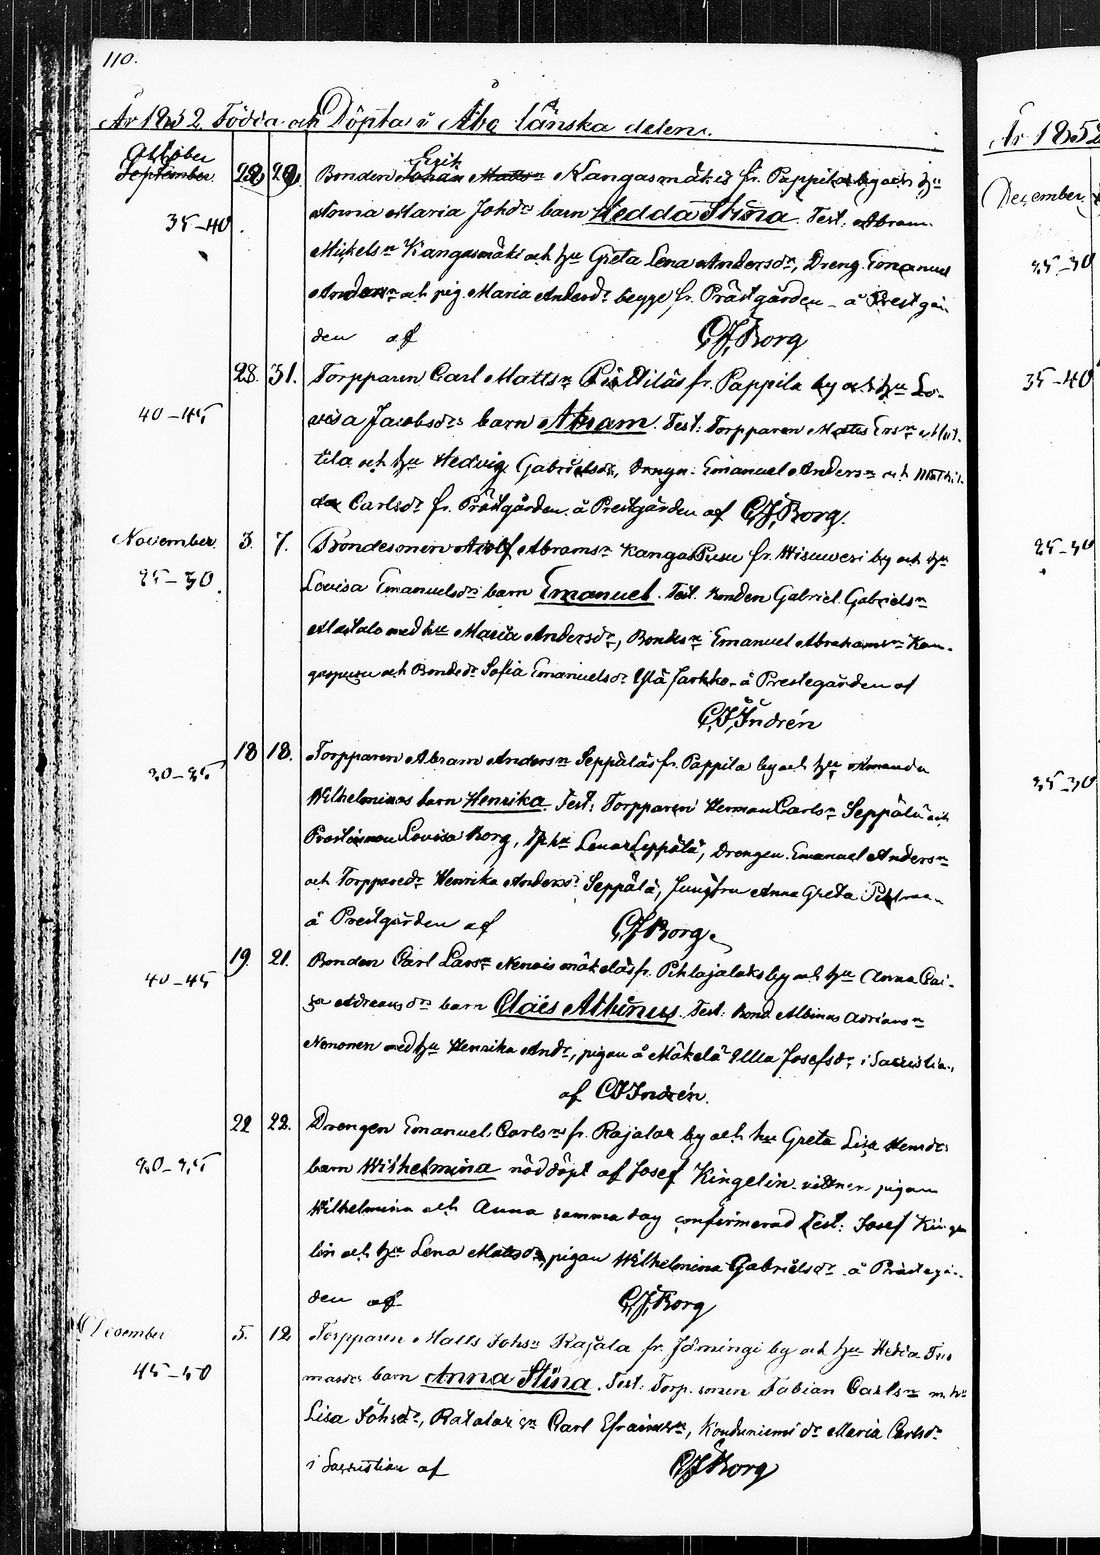 110.
År 1852. Födda och Döpta i Åbo länska delen.
År 1852
October
September 28 29 Bonden Erik Johan Matts:n Kangasmäki fr. Pappila by och h:u
35-40. Anna Maria Johd:r barn Hedda Stina. Test. Abram
Mickels:n Kangasmäki och h:u Greta Lena Andersd:r, Dreng Emanuel
Anders:n och pig. Maria Andersd:r begge fr. Prästgården - å Prestgår
den af CJ Borg
28. 31. Torpparen Carl Matts:n fr. Pappila by och h:u Lo-
40-45 visa Jacobsd:rs barn Abram. Test: Torpparen Matts
tila och h:u Hedvig Gabrielsd:r, Drengn. Emanuel Anders:n och Mathil-
da Carlsd:r fr. Prästgården å Prestgården af CJ Borg.
November. 3. 7. Bondesonen Adolf Abrams:n Kangaspusu fr. by och h:u
25-30. Lovisa Emanuelsd:rs barn Emanuel. Test. Bonden Gabriel Gabriels:n
Alastalo med h:u Maria Andersd:r, Bondes:n Emanuel Abrahams:n Kan-
gaspusu och Bonded:r Sofia Emanuelsd:r Ylä Jarkko - å Prestegården af
CJ Indrén
18 18. Torpparen Abram Anders:n Seppäläs fr. Pappila by och h:u Amanda
30-35 Wilhelminas barn Henrika. Test: Torpparen Herman Carls:n Seppälä och
Lovisa Borg, Lena Seppälä, Drengen Emanuel Anders:n
och Torppared:r Henrika Andersd:r Seppälä, Jungfru Anna Greta
å Prestgården af CJ Borg.
19. 21. Bonden Carl Lars:n mäkeläs fr. Pihlajalaks by och h:u Anna Cai-
40-45 sa Adreansd:rs barn Claës Albinus. Test: Bond. Albinus Adrians:n
Nenonen med h:u Henrika And:r, pigan å Mäkelä Ulla Josefsd:r i Sacristian,
af CJ Indrén.
22 22. Drengen Emanuel Carls:n fr. Rajalax by och h:u Greta Lisa Hensd:r
20-25 barn Wilhelmina nöddöpt af Josef Kingelin. vittnen pigan
Wilhelmina och Anna samma dag confirmerad Test: Josef Kinge
lin och h:u Lena Matsd:r, pigan Wilhelmina Gabrielsd:r å Prästegår-
den af CJ Borg
December 5. 12. Torpparen Matts Johs:n Rajala fr. Jämingi by och h:u Hedda Tho
45-50 masd:s barn Anna Stina. Test: Torp. sonen Fabian Carls:n m. h:u
Lisa Johsd:r, Ratalax s:n Carl Efraims:n, Konduniemi d:r Maria Carlsd:r
i Sacristian af CJ Borg
December.
25-30
35-40
25-30
25-30